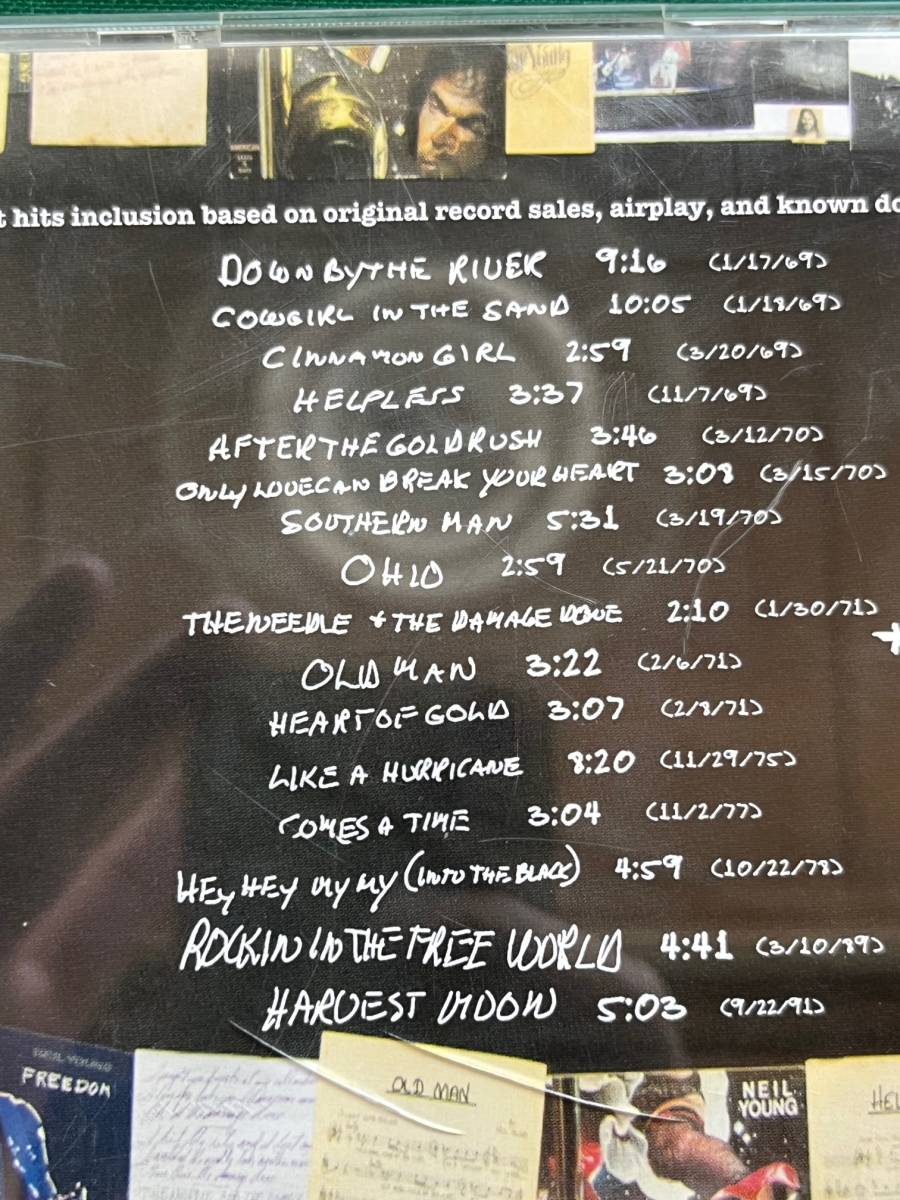 Young
t hits inclusion based on original record sales, airplay, and known do
DOWN BY THE RIVER 9:16 (1/17/69)
COWGIRL IN THE SAND 10:05 (1/18/69)
CINNAMON GIRL 2:59 (3/20/69)
HELPLESS 3:37 (11/7/69)
AFTER THE GOLDRUSH 3:46 (3/12/70)
ONLY LOVE CAN BREAK YOUR HEART 3:08 (3/15/70)
SOUTHERN MAN 5:31 (3/19/70)
OHIO 2:59 (5/21/70)
THE NEEDLE + THE DAMAGE DONE 2:10 (1/30/71)
OLD MAN 3:22 (2/6/71)
HEART OF GOLD 3:07 (2/8/71)
LIKE A HURRICANE 8:20 (11/29/75)
COMES A TIME 3:04 (11/2/77)
HEY, HEY MY MY (INTO THE BLACK) 4:59 (10/22/78)
ROCKIN IN THE FREE WORLD 4:41 (3/10/89)
HARVEST MOON 5:03 (9/22/91)
NEIL YOUNG
FREEDOM
OLD MAN
NEIL
YOUNG
HEL